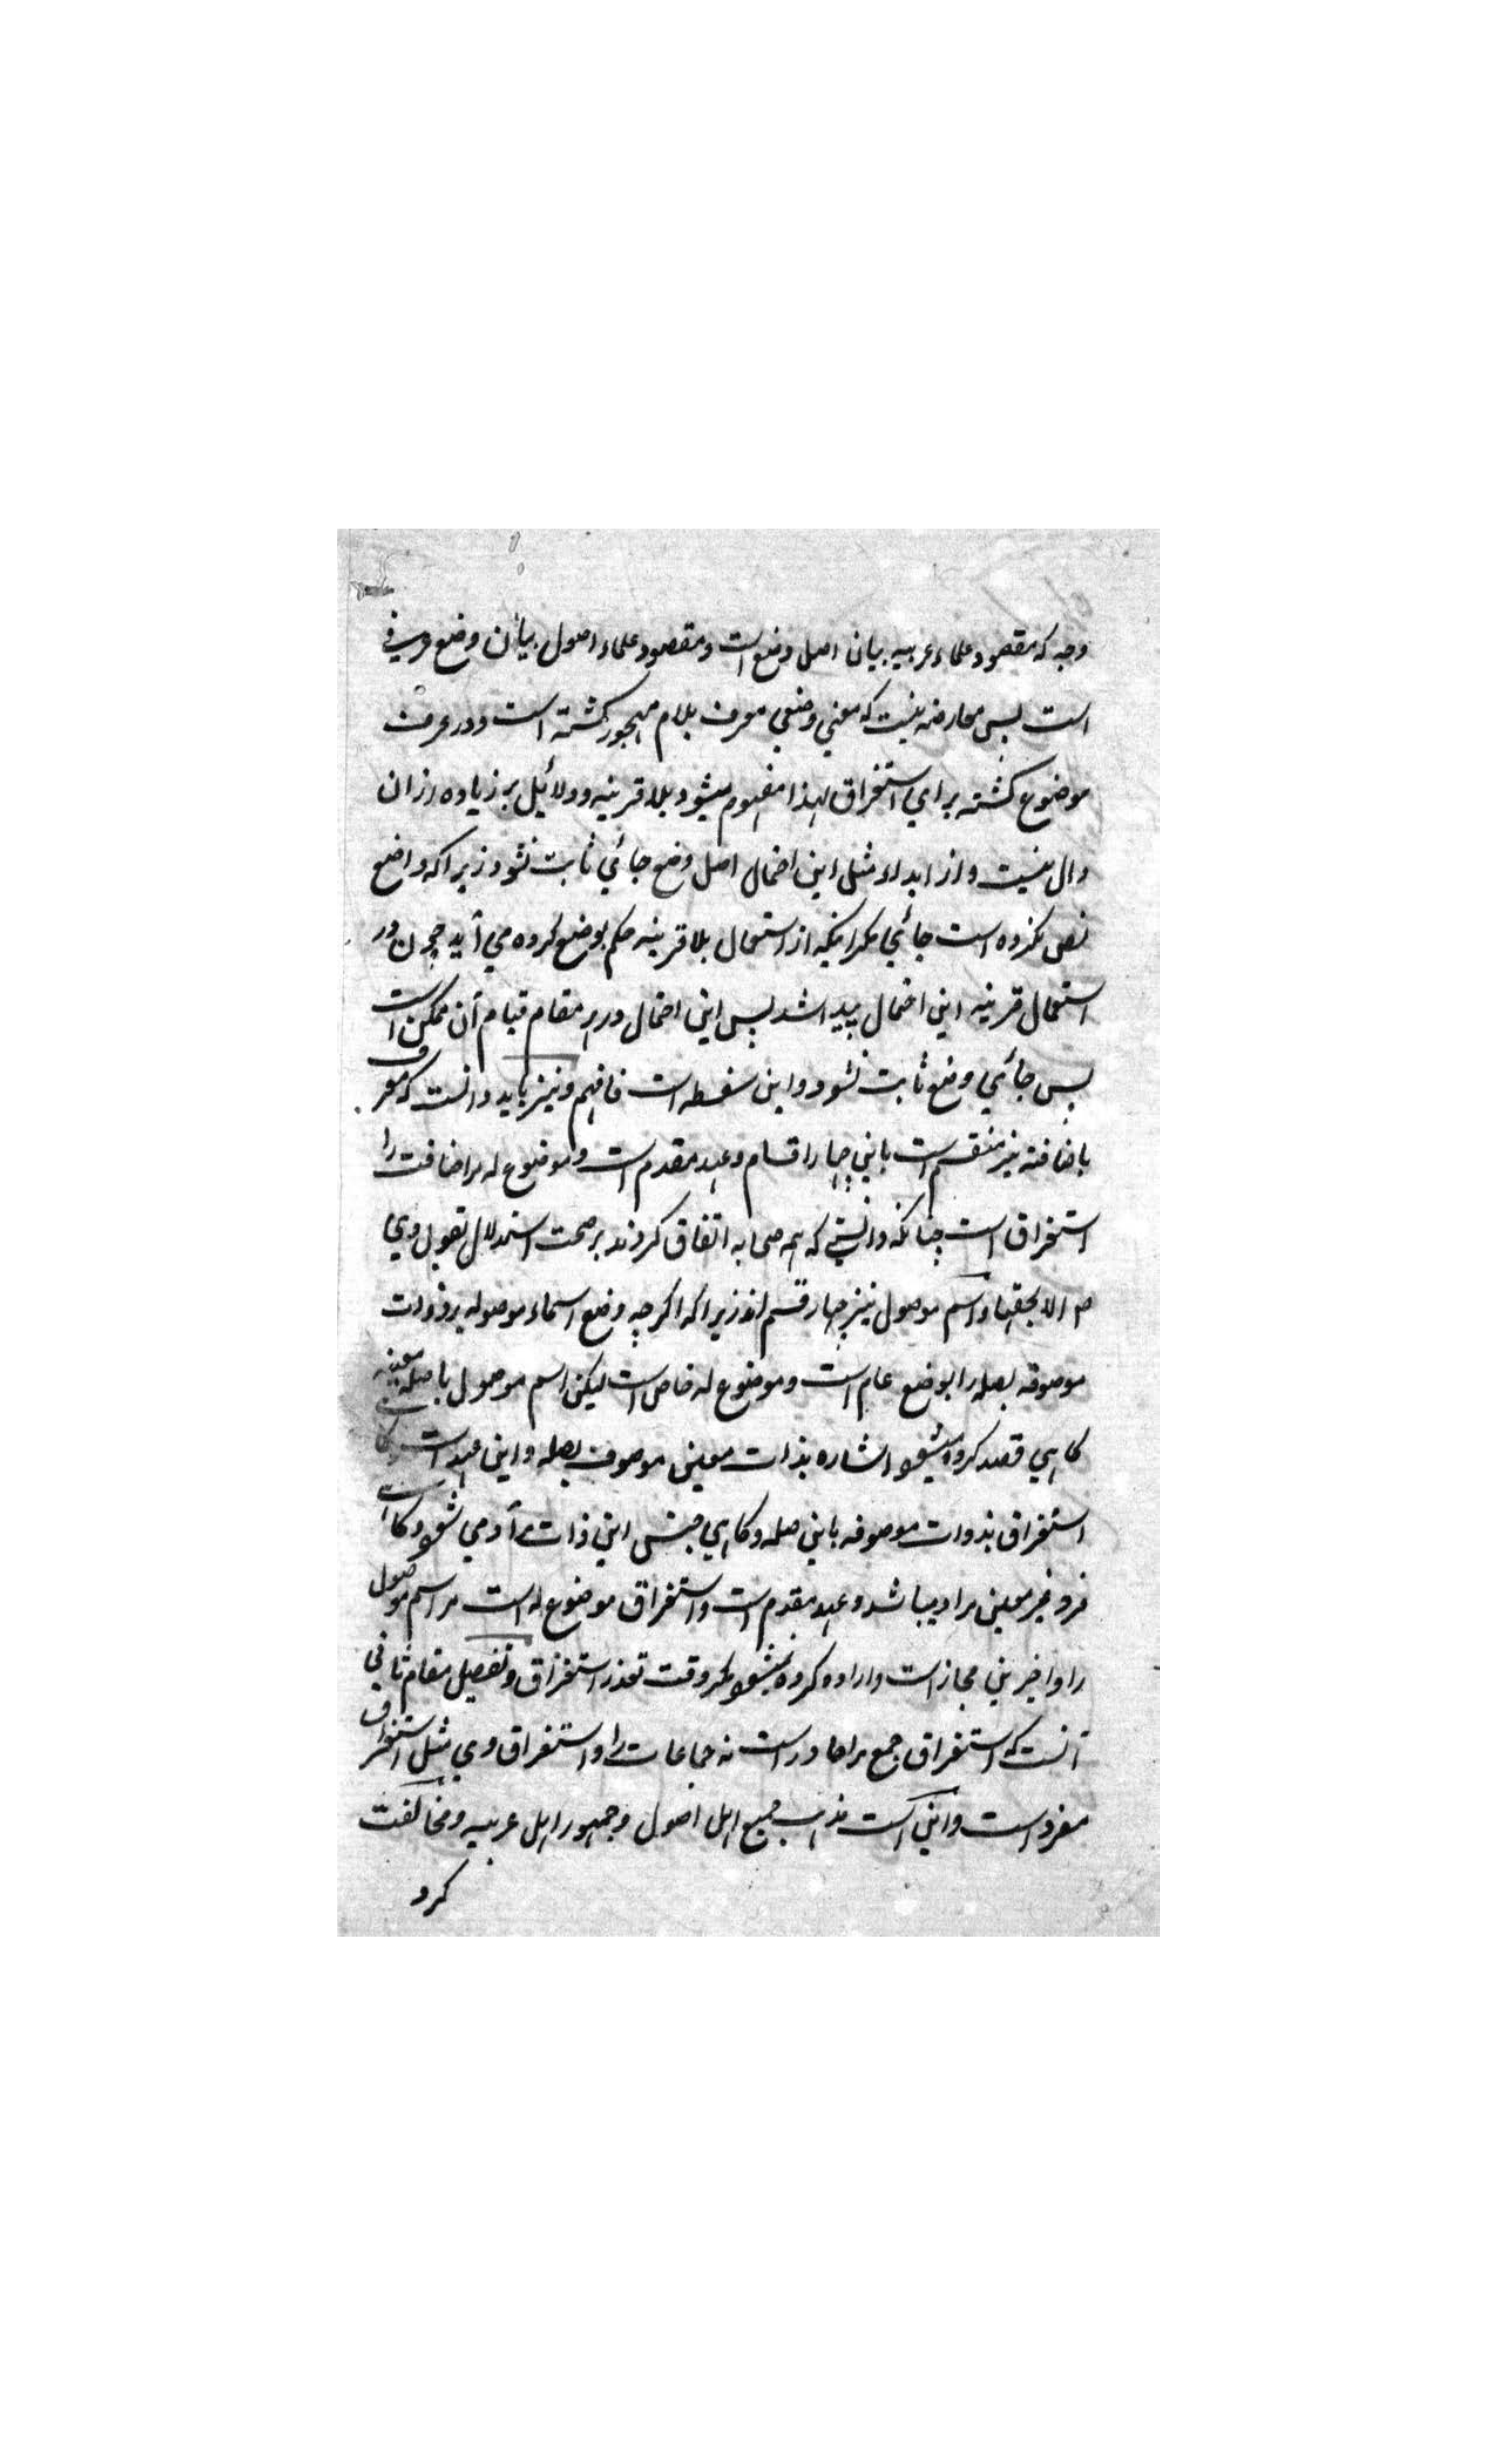 وجه که مقصود علماء عربیه بیان اصل وضع است و مقصود علماء اصول بیان وضع عرفی
است پس معارضه نیست که معنی وضعی معرف بلام مهجور گشته است و در عرف
موضوع گشته برای استغراق لهذا مفهوم میشود بلا قرینه و دلائل بر زیاده ازان
دال نیست و از ابداء مثل این احتمال اصل وضع جائی ثابت نشود زیرا که واضع
نص نکرده است جائی مگر اینکه از استعمال بلا قرینه حکم بوضع کرده می آید چون در
استعمال قرینه این احتمال پیدا شد پس این احتمال در هر مقام قیام آن ممکن است
پس جائی وضع ثابت نشود و این سفسطه است فافهم و نیز باید دانست که معرف
باضافته نیز منقسم است باین چهار اقسام و عهد مقدم است و موضوع له مر اضافت را
استغراق است چنانکه دانستی که همه صحابه اتفاق کردند بر صحت استدلال بقول وی
صم الا بحقها و اسم موصول نیز چهار قسم اند زیرا که اگرچه وضع اسماء موصوله بر ذوات
موصوفه بصله را بوضع عام است و موضوع له خاص است لیکن اسم موصول با صله معینه
کاهی قصد کرده میشود اشاره بذات معین موصوف بصله و این عهد است
استغراق بذوات موصوفه باین صله و کاهی جنس این ذات مراد می شود
فرد غیر معین مراد میباشد و عهد مقدم است و استغراق موضوع له است مر اسم موصول
را و اخیرین مجاز است و اراده کرده نمیشود مگر وقت تعذر استغراق و تفصیل مقام ثانی
آنست که استغراق جمع مر احاد راست نه جماعات را و استغراق وی مثل استغراق
مفرد است و این است مذهب جمیع اهل اصول و جمهور اهل عربیه و مخالفت
کرد